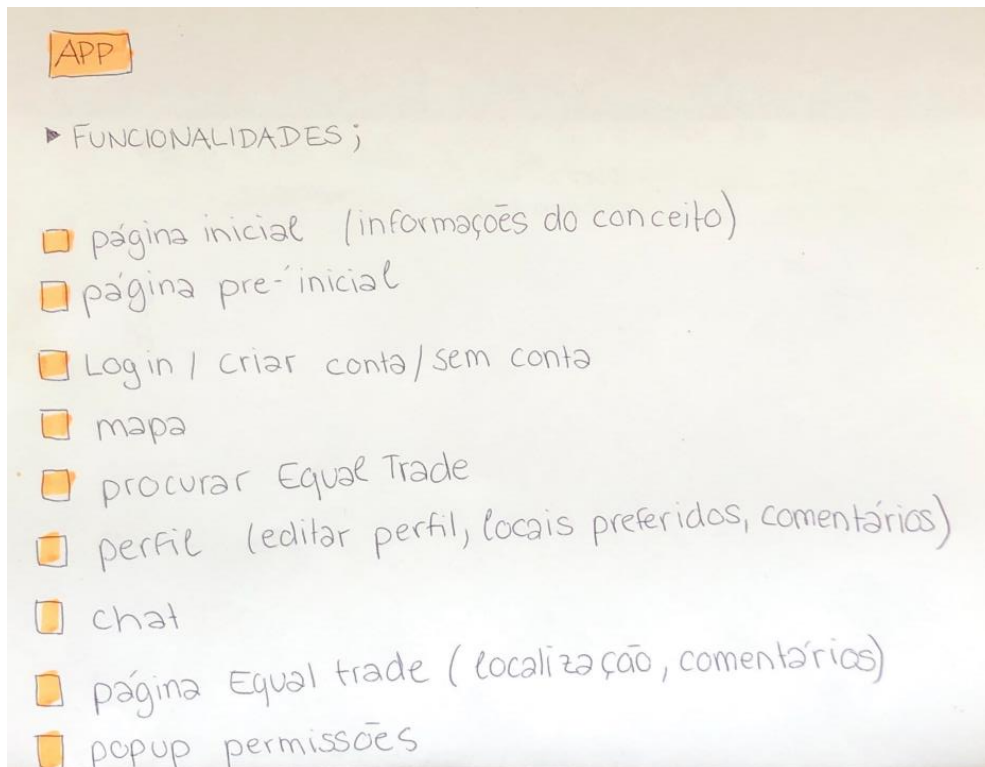 APP
FUNCIONALIDADES;
página inicial (informações do conceito)
página pre-inicial
Login / criar conta/sem conta
mapa
procurar Equal Trade
perfil (editar perfil, locais preferidos, comentários)
chat
página Equal trade (localização, comentários)
popup permissões